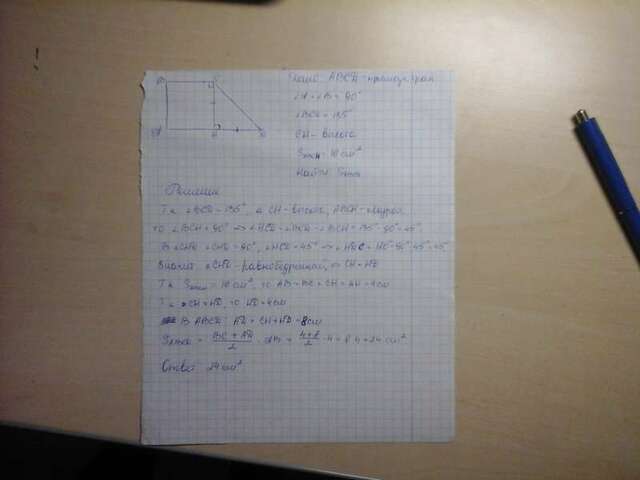 Дано: ABCD - прямоуг. трап.
∠A = ∠B = 90°
∠BCD = 135°
CH - высота
Найти:
Решение
Т.к. ∠BCD = 135°, а CH - высота, ABCH - квадрат
то ∠BCH = 90° => ∠HCD = ∠BCD - ∠BCH = 135° - 90° = 45°
В ∠CHD = 90°, ∠HCD = 45° =>
Значит CHD - равнобедренный, => CH = HD
Т.к. = 16 см², то AB = BC = CH = AH = 4см
Т.к. CH = HD, то HD = 4см
В ABCD: AD = CH + HD = 8см
= BC + AD / 2 · AB = 4+8 / 2 · 4 = 24 см²
Ответ: 24 см²